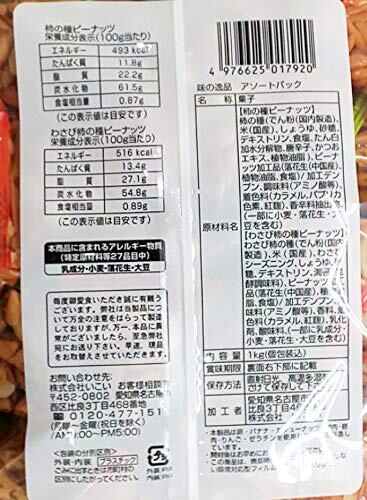 柿の種ピーナッツ
栄養成分表示(100g当たり)
エネルギー 493 kcal
たんぱく質 11.8g
脂質 22.2g
炭水化物 61.5g
食塩相当量 0.87g
(この表示値は目安です)
わさび柿の種ピーナッツ
栄養成分表示(100g当たり)
エネルギー 516 kcal
たんぱく質 13.4g
脂質 27.1g
炭水化物 54.8g
食塩相当量 0.89g
(この表示値は目安です)
本商品に含まれるアレルギー物質
(特定原材料等27品目中)
乳成分・小麦・落花生・大豆
毎度御愛食いただき誠に有難う
ございます。弊社は当製品につい
て万全の注意をはらって製造して
おりますが、万一、本品に異常が
ございましたら、至急弊社宛に
おおくり下さいませ。早速、現品と
お取替えさせていただきます。
お問い合わせ先
株式会社いこい お客様相談
〒452-0802 愛知県名古屋
西区比良3丁目468番地
0120-477-151
(月曜～金曜(祝日を除く)
AM9:00～PM5:00)
<包装の分別区別>
外装・内装 プラスチック
ごみに出すときは市町村の区別
にしたがって出してください。
4976625017920
味の逸品 アソートパック
名称 菓子
原材料名
【柿の種ピーナッツ】
柿の種(でん粉(国内製造)、
米(国産)、しょうゆ、砂糖、
デキストリン、食塩、たん白
加水分解物、唐辛子、かつお
エキス、植物油脂)、ピー
ナッツ加工品(落花生(中国産)、
植物油脂、食塩)/加工デンプ
ン、調味料(アミノ酸等)、
着色料(カラメル、パプリカ
色素、紅麹)、香辛料抽出物、
(一部に小麦・落花生・大
豆を含む)
【わさび柿の種ピーナッツ】
わさび柿の種(でん粉(国内製
造)、米(国産)、わさび
シーズニング、しょうゆ、
糖、デキストリン、海苔、
酵調味料)、ピーナッツ加工
品(落花生(中国産)、植物油
脂、食塩)/加工デンプン、
調味料(アミノ酸等)、香料、
着色料(カラメル、紅麹)、乳化
剤、酸味料、(一部に乳成分・
小麦・落花生・大豆を含む)
内容量 1kg(個包装込)
賞味期限 裏面右下部に記載
保存方法 直射日光、高温多湿
さけて保存して下さ
加工者
愛知県名古屋市
比良3丁目468